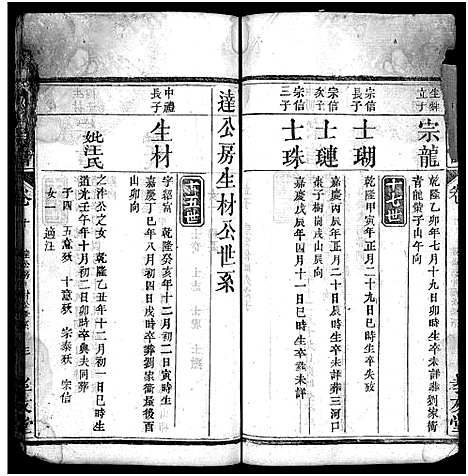 生□
立子
宗龍
乾隆乙卯年七月十九日戌時生卒未詳葬劉家衝
青龍藥子山午向
十七世
宗信
長子
士瑚
乾隆甲寅年正月二十九日巳時生卒失攷
宗信
次子
士璉
嘉慶丙辰年正月二十日辰時生卒未詳葬三河口
棗子樹嶺戌山辰向
宗信
三子
士珠
嘉慶戊辰年四月十一日巳時生卒葬未詳
達公房生材公世系
十五世
中禮
長子
生材
字紹富 乾隆癸亥年十二月初二日寅時生
嘉慶丁巳年八月初四日戌時卒葬劉家衝屋後酉
山卯向
妣汪氏
之沛公之女 乾隆乙丑年十二月初一日時生
道光壬午年十月初二日卯時卒與夫同葬
子四 五意殀 十意殀 宗泰殀 宗信
女一 適汪
卷十
孝友堂